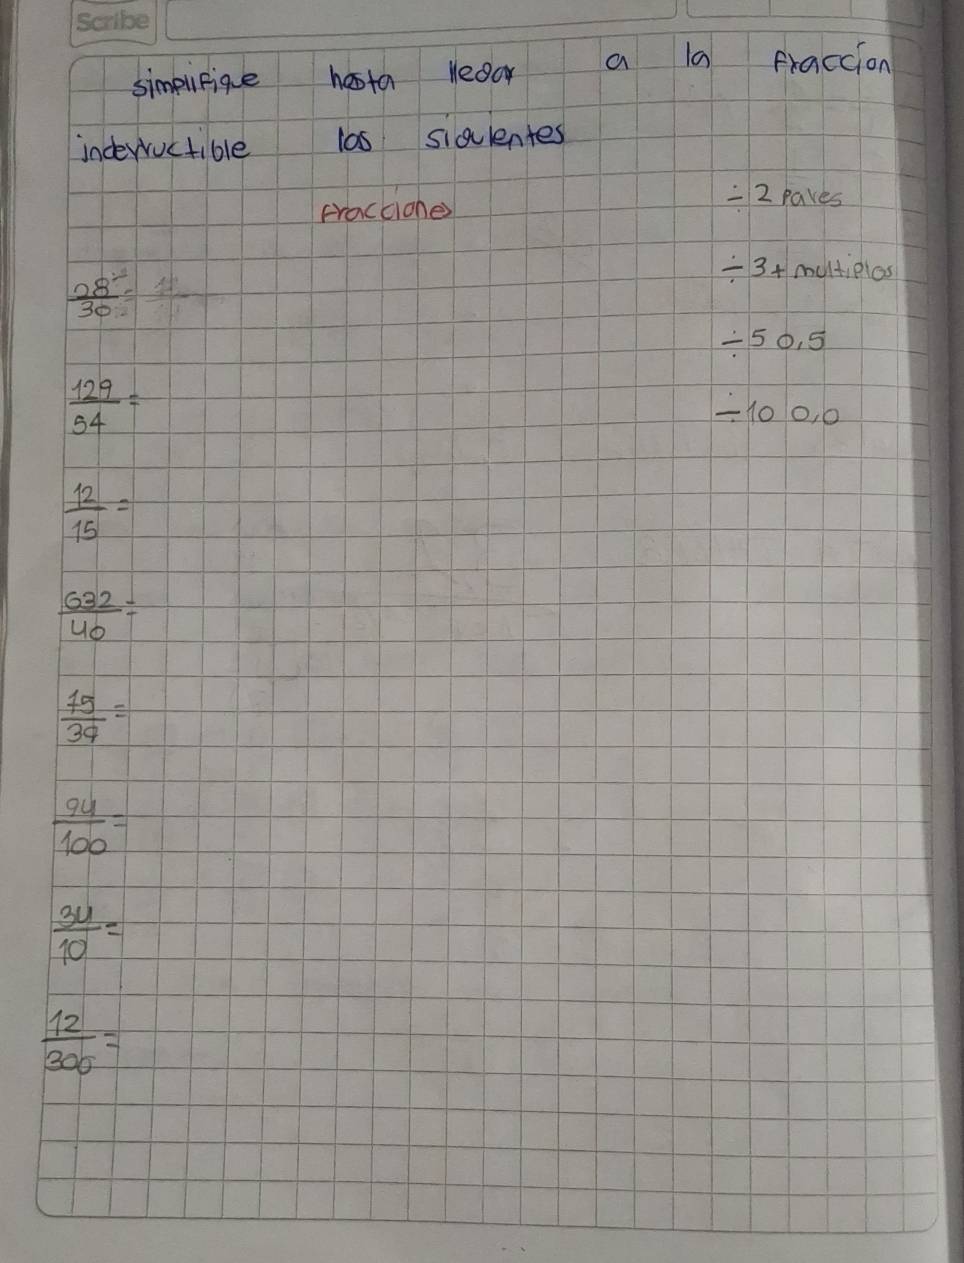 Scribe
simplifique hasta llegar a la fraccion
inderructible las siguientes
fracciones
÷ 2 pares
28/30 =
÷ 3 + multiplos
÷ 5 0,5
129/54 =
÷ 10 0,0
12/15 =
632/40 =
15/39 =
94/100 =
34/10 =
12/300 =